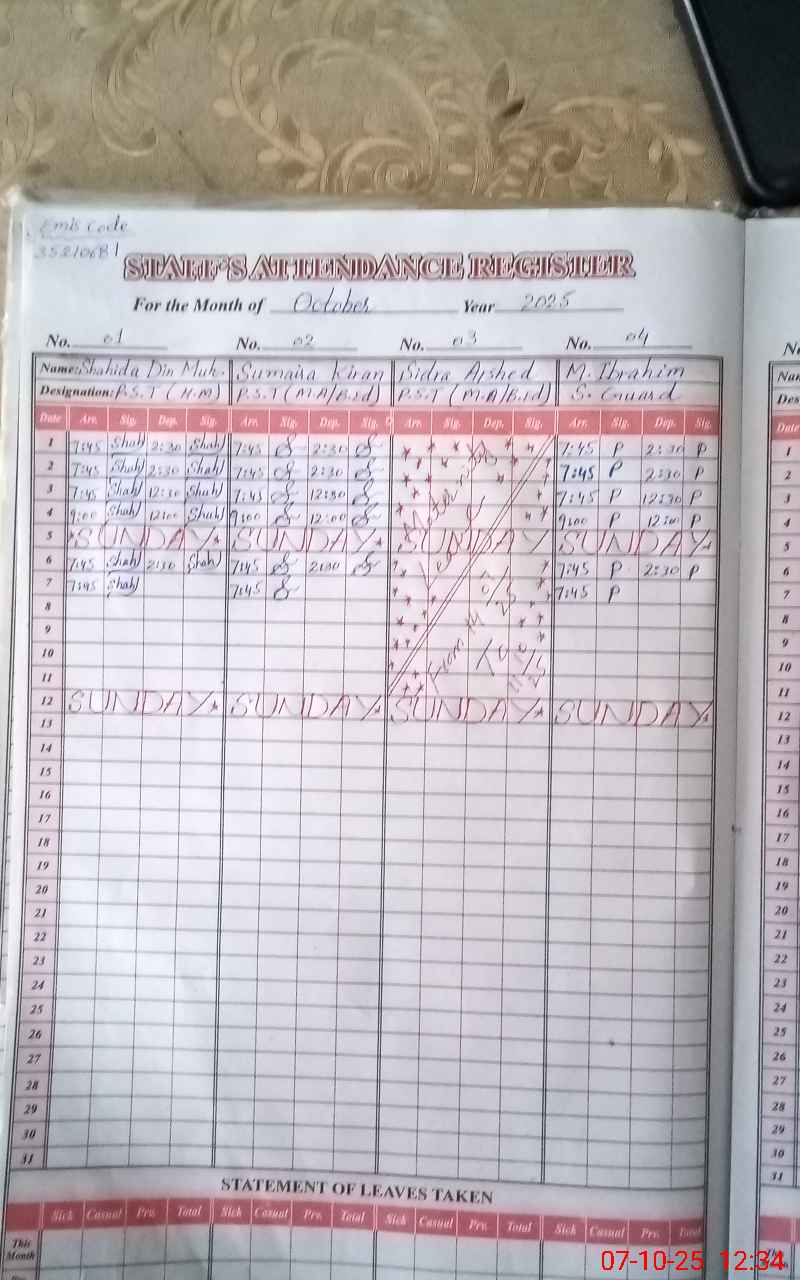 Emis Code
35210681
STAFF'S ATTENDANCE REGISTER
For the Month of October Year 2025
No. 01 No. 02 No. 03 No. 04
Name: Shahida Din Muh. Sumaira Kiran Sidra Arshed M. Ibrahim
Designation: P.S.T (H.M) P.S.T (M.A/B.ed) P.S.T (M.A/B.ed) S. Guard
Date Arr. Sig. Dep. Sig. Arr. Sig. Dep. Sig. Arr. Sig. Dep. Sig. Arr. Sig. Dep. Sig.
1 7:45 Shah 2:30 Shah 7:45 2:30 7:45 P 2:30 P
2 7:45 Shah 2:30 Shah 7:45 2:30 7:45 P 2:30 P
3 7:45 Shah 12:30 Shah 7:45 12:30 7:45 P 12:30 P
4 9:00 Shah 12:00 Shah 9:00 12:00 9:00 P 12:00 P
Maternity
Leave
5 SUNDAY SUNDAY SUNDAY SUNDAY
6 7:45 Shah 2:30 Shah 7:45 2:30 7:45 P 2:30 P
7 7:45 Shah 7:45 7:45 P
From 14
To
8
9
10
11
12 SUNDAY SUNDAY SUNDAY SUNDAY
13
14
15
16
17
18
19
20
21
22
23
24
25
26
27
28
29
30
31
STATEMENT OF LEAVES TAKEN
Sick Casual Prv. Total Sick Casual Prv. Total Sick Casual Prv. Total Sick Casual Prv. Total
This
Month
07-10-25 12:34